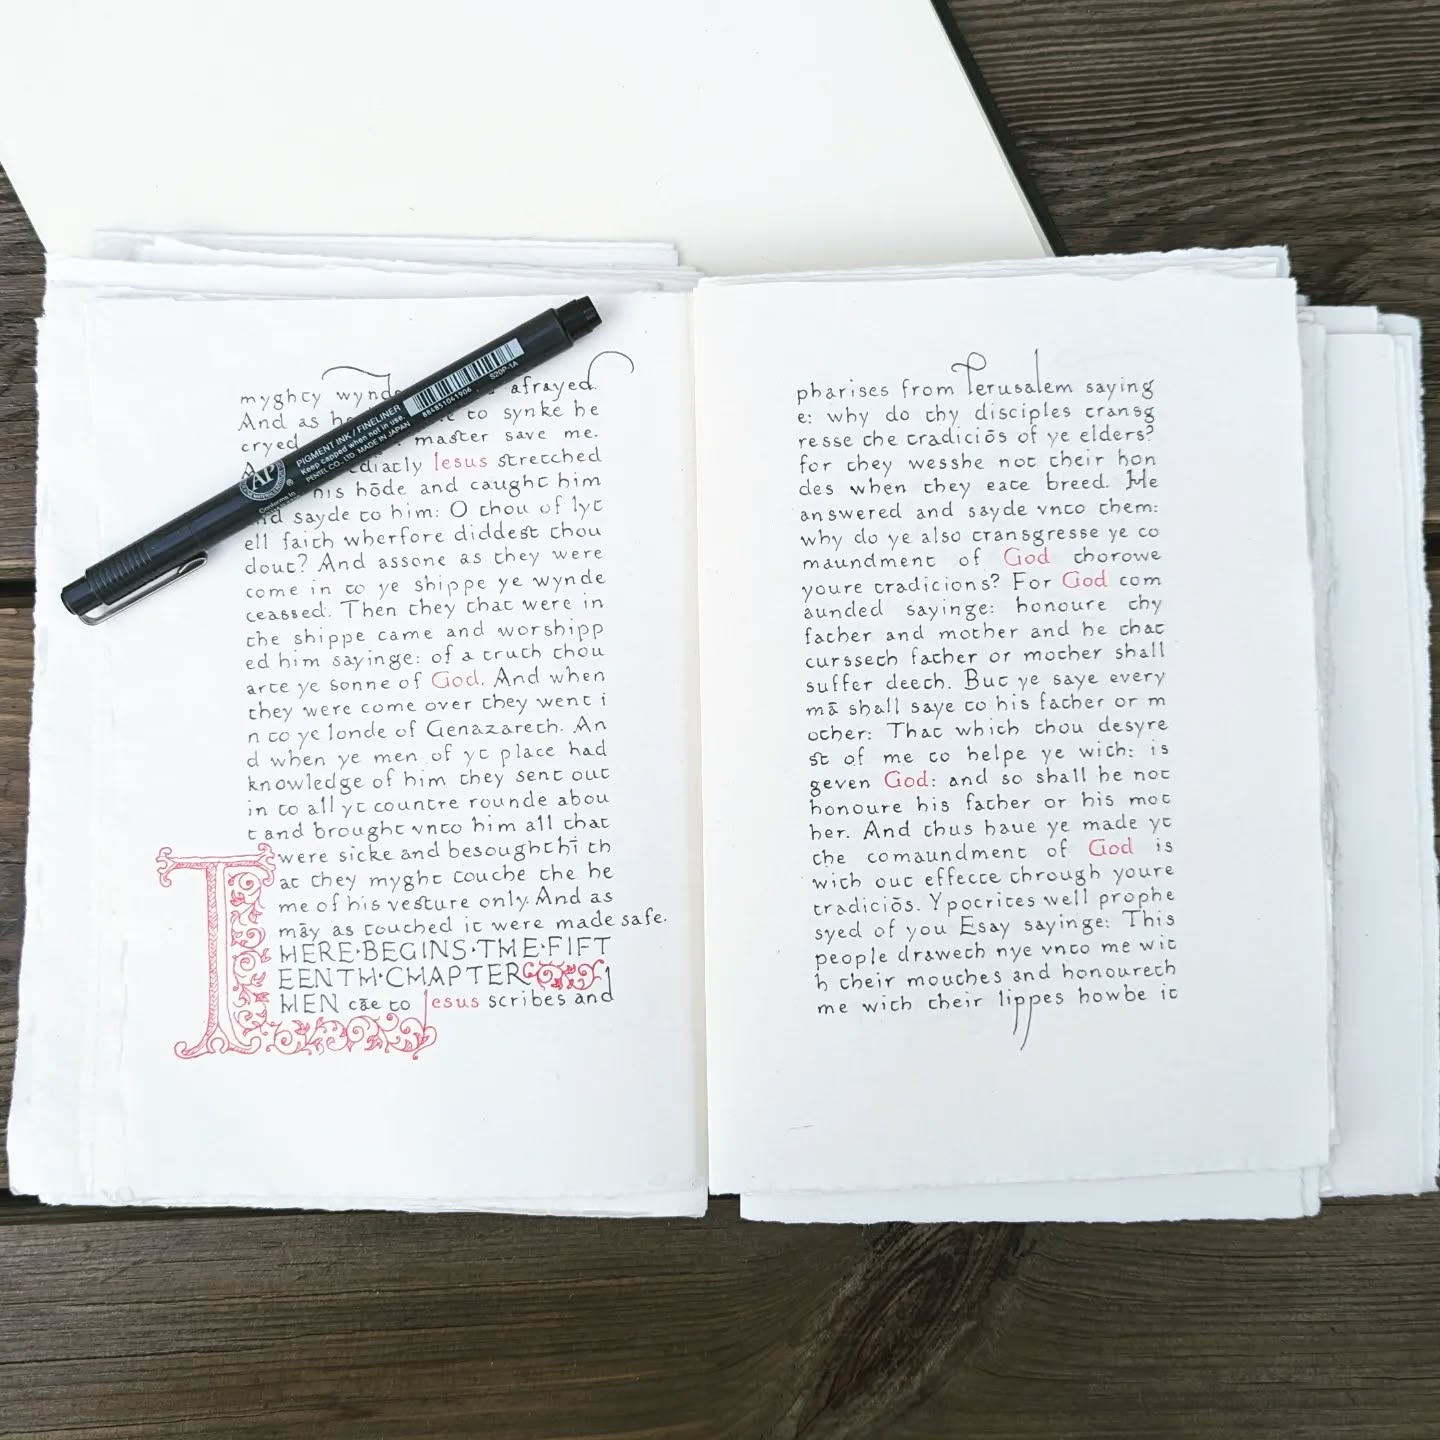 myghty wynde afrayed.
And as he to synke he
cryed master save me.
Iesus stretched
his hōde and caught him
and sayde to him: O thou of lyt
ell faith wherfore diddest thou
dout? And assone as they were
come in to ye shippe ye wynde
ceassed. Then they that were in
the shippe came and worshipp
ed him sayinge: of a truth thou
arte ye sonne of God. And when
they were come over they went i
n to ye londe of Genazareth. An
d when ye men of yt place had
knowledge of him they sent out
in to all yt countre rounde abou
t and brought vnto him all that
were sicke and besought hī th
at they myght touche the he
me of his vesture only. And as
māy as touched it were made safe.
HERE·BEGINS·THE·FIFT
EENTH·CHAPTER
THEN cāe to Jesus scribes and
PIGMENT INK / FINELINER
Keep capped when not in use.
PENTEL CO., LTD. MADE IN JAPAN
884851061906
S20P-1A
AP
Conforms to
pharises from Ierusalem saying
e: why do thy disciples transg
resse the tradiciōs of ye elders?
for they wesshe not their hon
des when they eate breed. He
answered and sayde vnto them:
why do ye also transgresse ye co
maundment of God thorowe
youre tradicions? For God com
aunded sayinge: honoure thy
father and mother and he that
curssech father or mother shall
suffer deeth. But ye saye every
mā shall saye to his father or m
other: That which thou desyre
st of me to helpe ye with: is
geven God: and so shall he not
honoure his father or his mot
her. And thus haue ye made yt
the comaundment of God is
with out effecte through youre
tradiciōs. Ypocrites well prophe
syed of you Esay sayinge: This
people draweth nye vnto me wit
h their mouthes and honoureth
me with their lippes howbe it